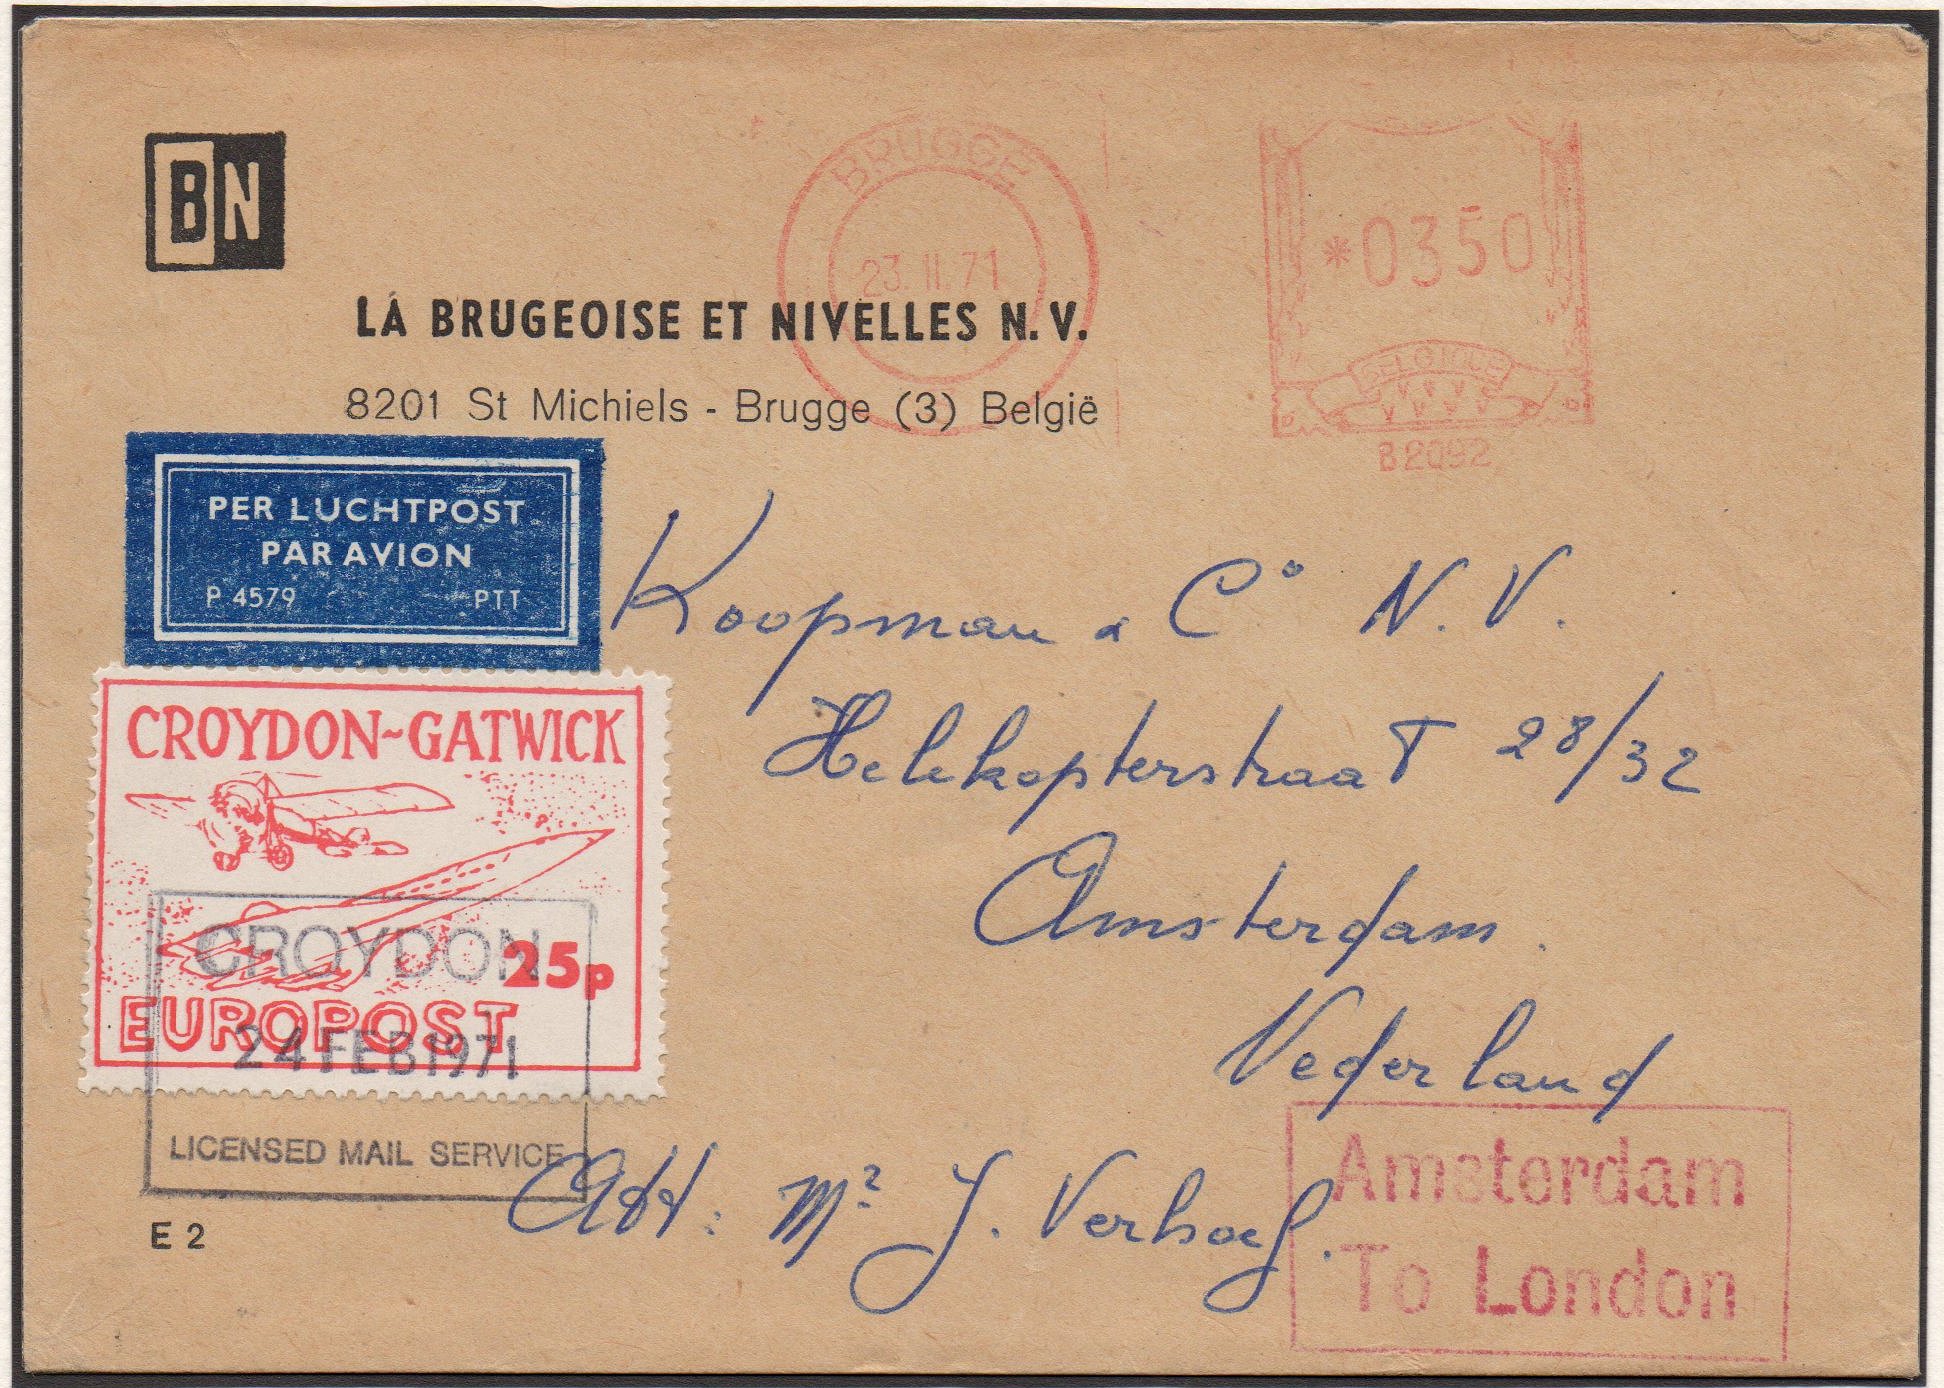 BN
BRUGGE
23. II. 71
*0350
BELGIQUE
B2092
LA BRUGEOISE ET NIVELLES N.V.
8201 St Michiels - Brugge (3) België
PER LUCHTPOST
PAR AVION
P 4579 PTT
CROYDON~GATWICK
25p
EUROPOST
CROYDON
24 FEB 1971
LICENSED MAIL SERVICE
E 2
Koopman & C° N.V.
Helekopterstraat 28/32
Amsterdam.
Nederland
Att: Mr J. Verhoef.
Amsterdam
To London